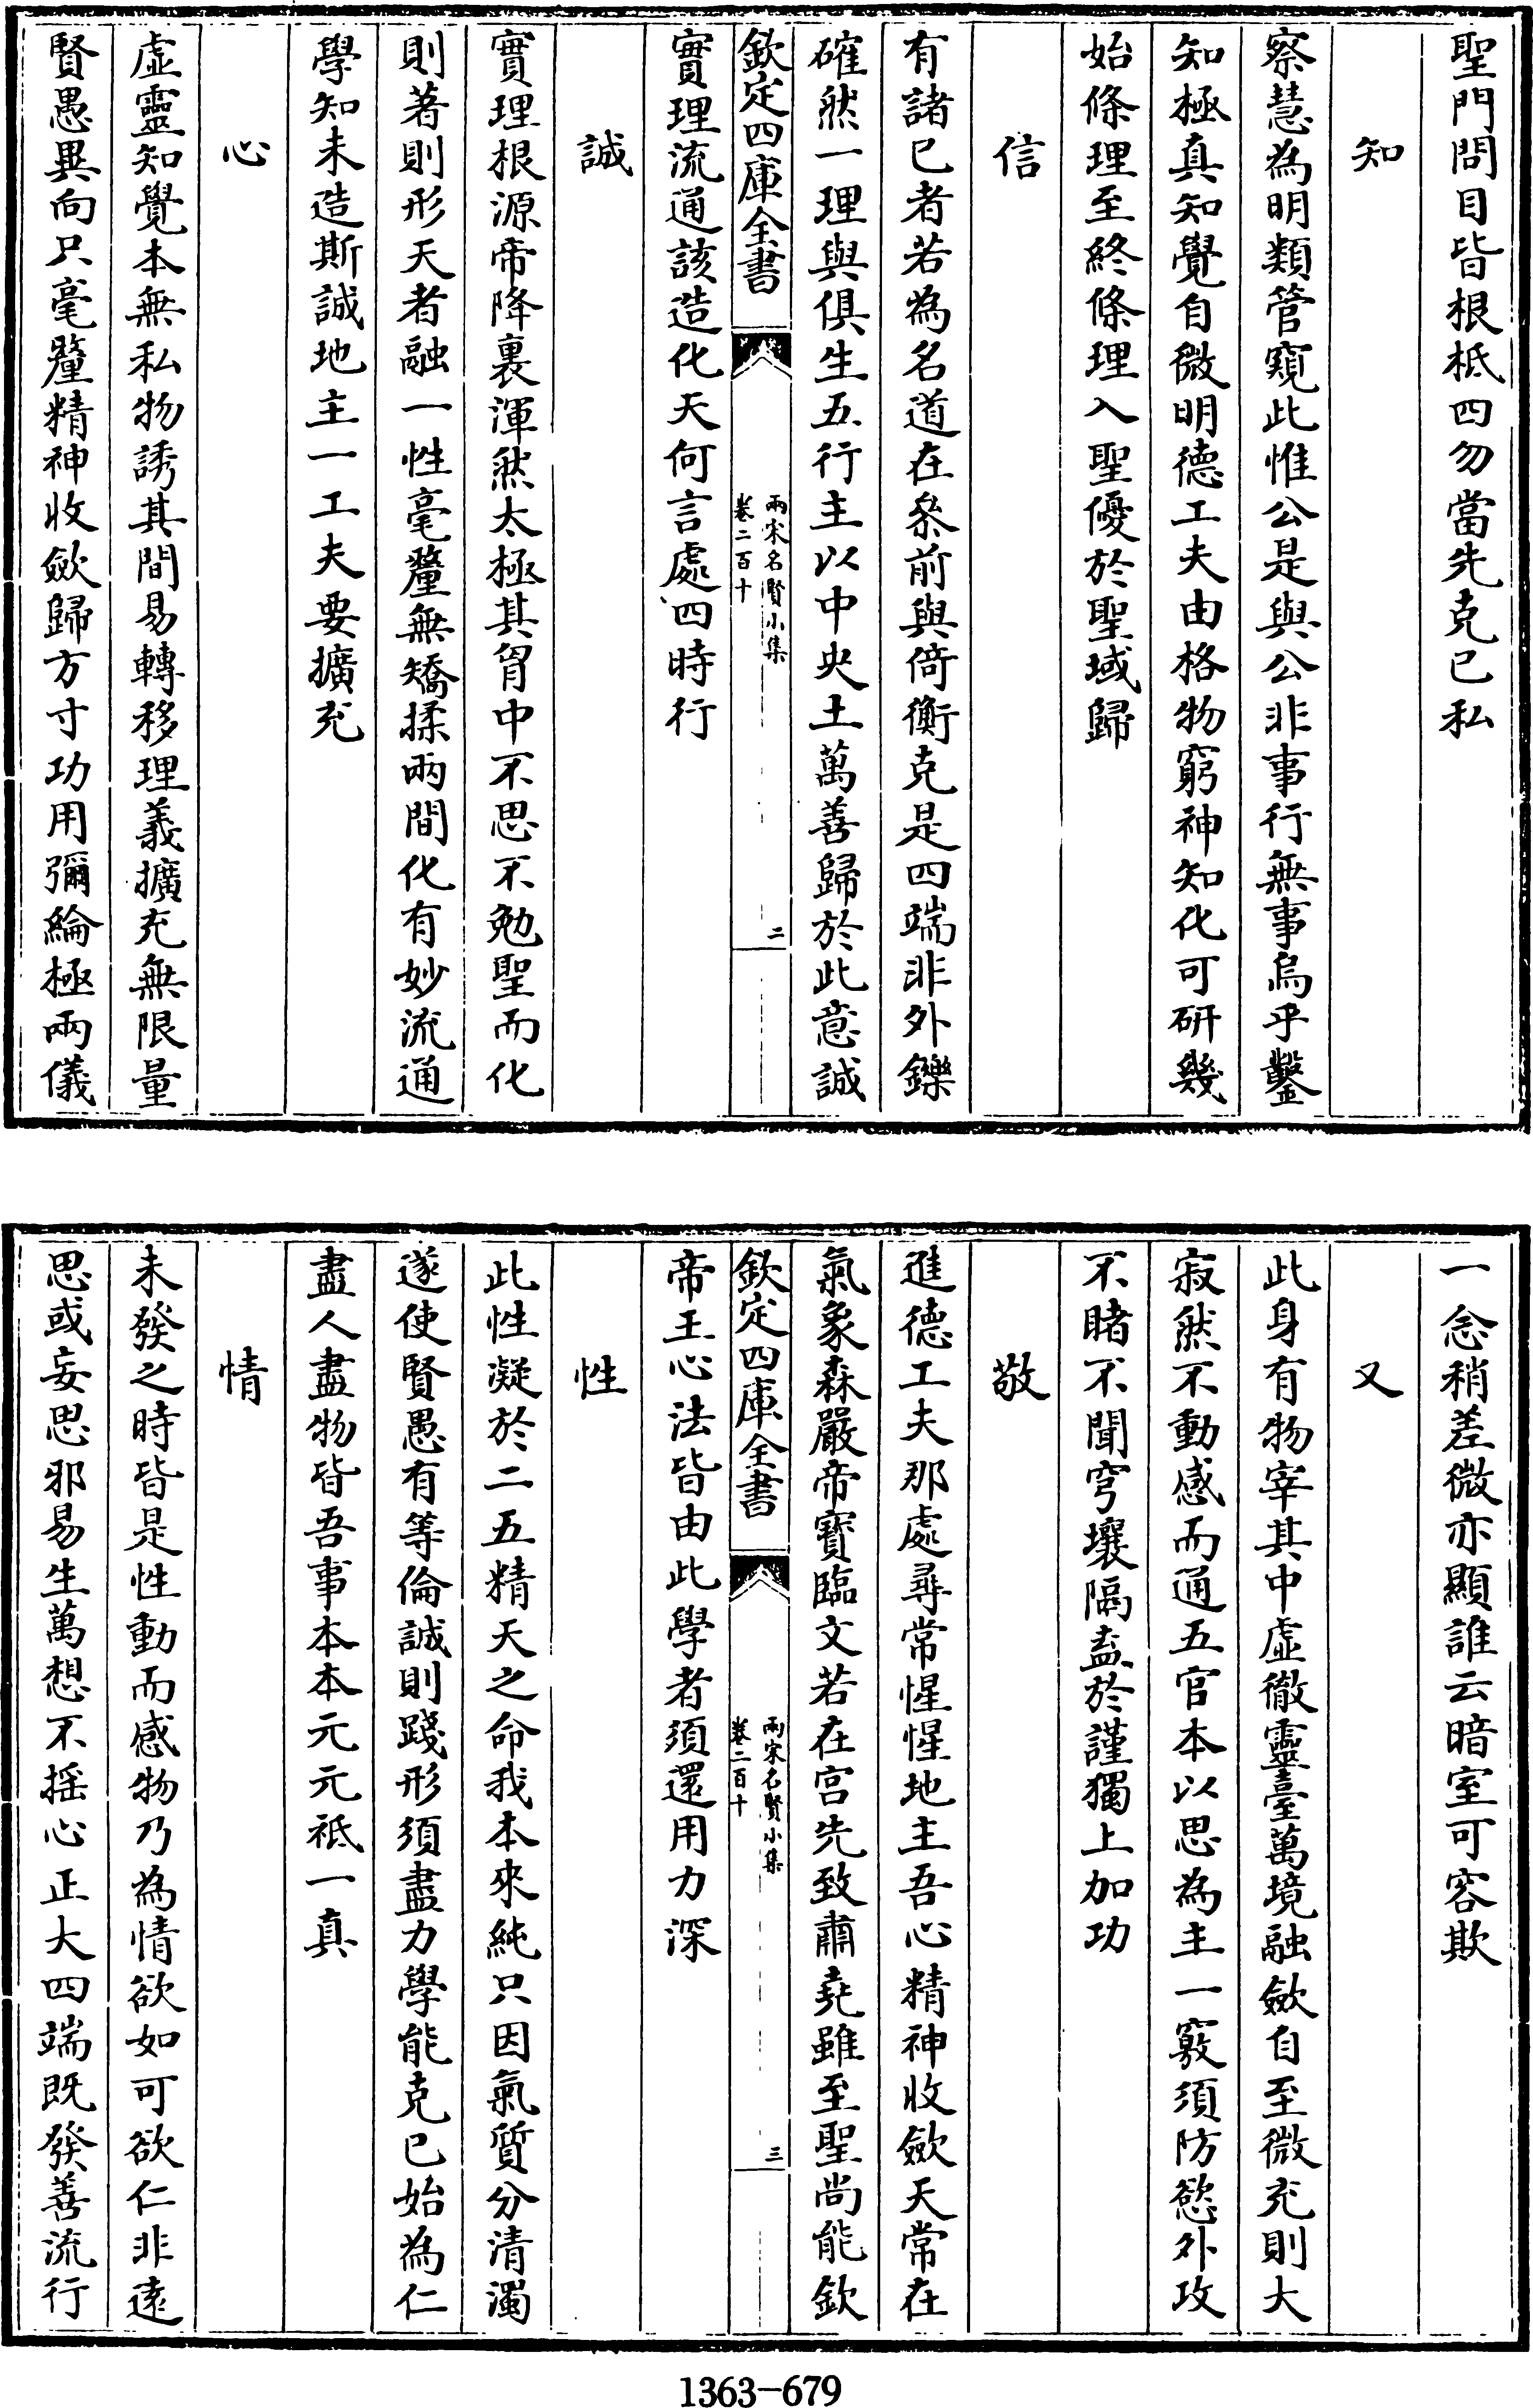 聖門問目皆根柢四勿當先克己私
知
察慧為明類管窺此惟公是與公非事行無事烏乎鑿
知極真知覺自微明德工夫由格物窮神知化可研幾
始條理至終條理入聖優於聖域歸
信
有諸已者若為名道在叅前與倚衡克是四端非外鑠
確然一理與俱生五行主以中央土萬善歸於此意誠
欽定四庫全書
兩宋名賢小集
卷二百十
二
實理流通該造化天何言處四時行
誠
實理根源帝降裏渾然太極其胷中不思不勉聖而化
則著則形天者融一性毫釐無矯揉兩間化有妙流通
學知未造斯誠地主一工夫要擴充
心
虛靈知覺本無私物誘其間易轉移理義擴充無限量
賢愚異向只毫釐精神收斂歸方寸功用彌綸極兩儀
一念稍差微亦顯誰云暗室可容欺
又
此身有物宰其中虛徹靈臺萬境融斂自至微充則大
寂然不動感而通五官本以思為主一竅須防慾外攻
不睹不聞穹壤隔盍於謹獨上加功
敬
進德工夫那處尋常惺惺地主吾心精神收斂天常在
氣象森嚴帝寶臨文若在宮先致肅堯雖至聖尚能欽
欽定四庫全書
兩宋名賢小集
卷二百十
三
帝王心法皆由此學者須還用力深
性
此性凝於二五精天之命我本來純只因氣質分清濁
遂使賢愚有等倫誠則踐形須盡力學能克己始為仁
盡人盡物皆吾事本本元元祗一真
情
未發之時皆是性動而感物乃為情欲如可欲仁非遠
思或妄思邪易生萬想不搖心正大四端既發善流行
1363-679